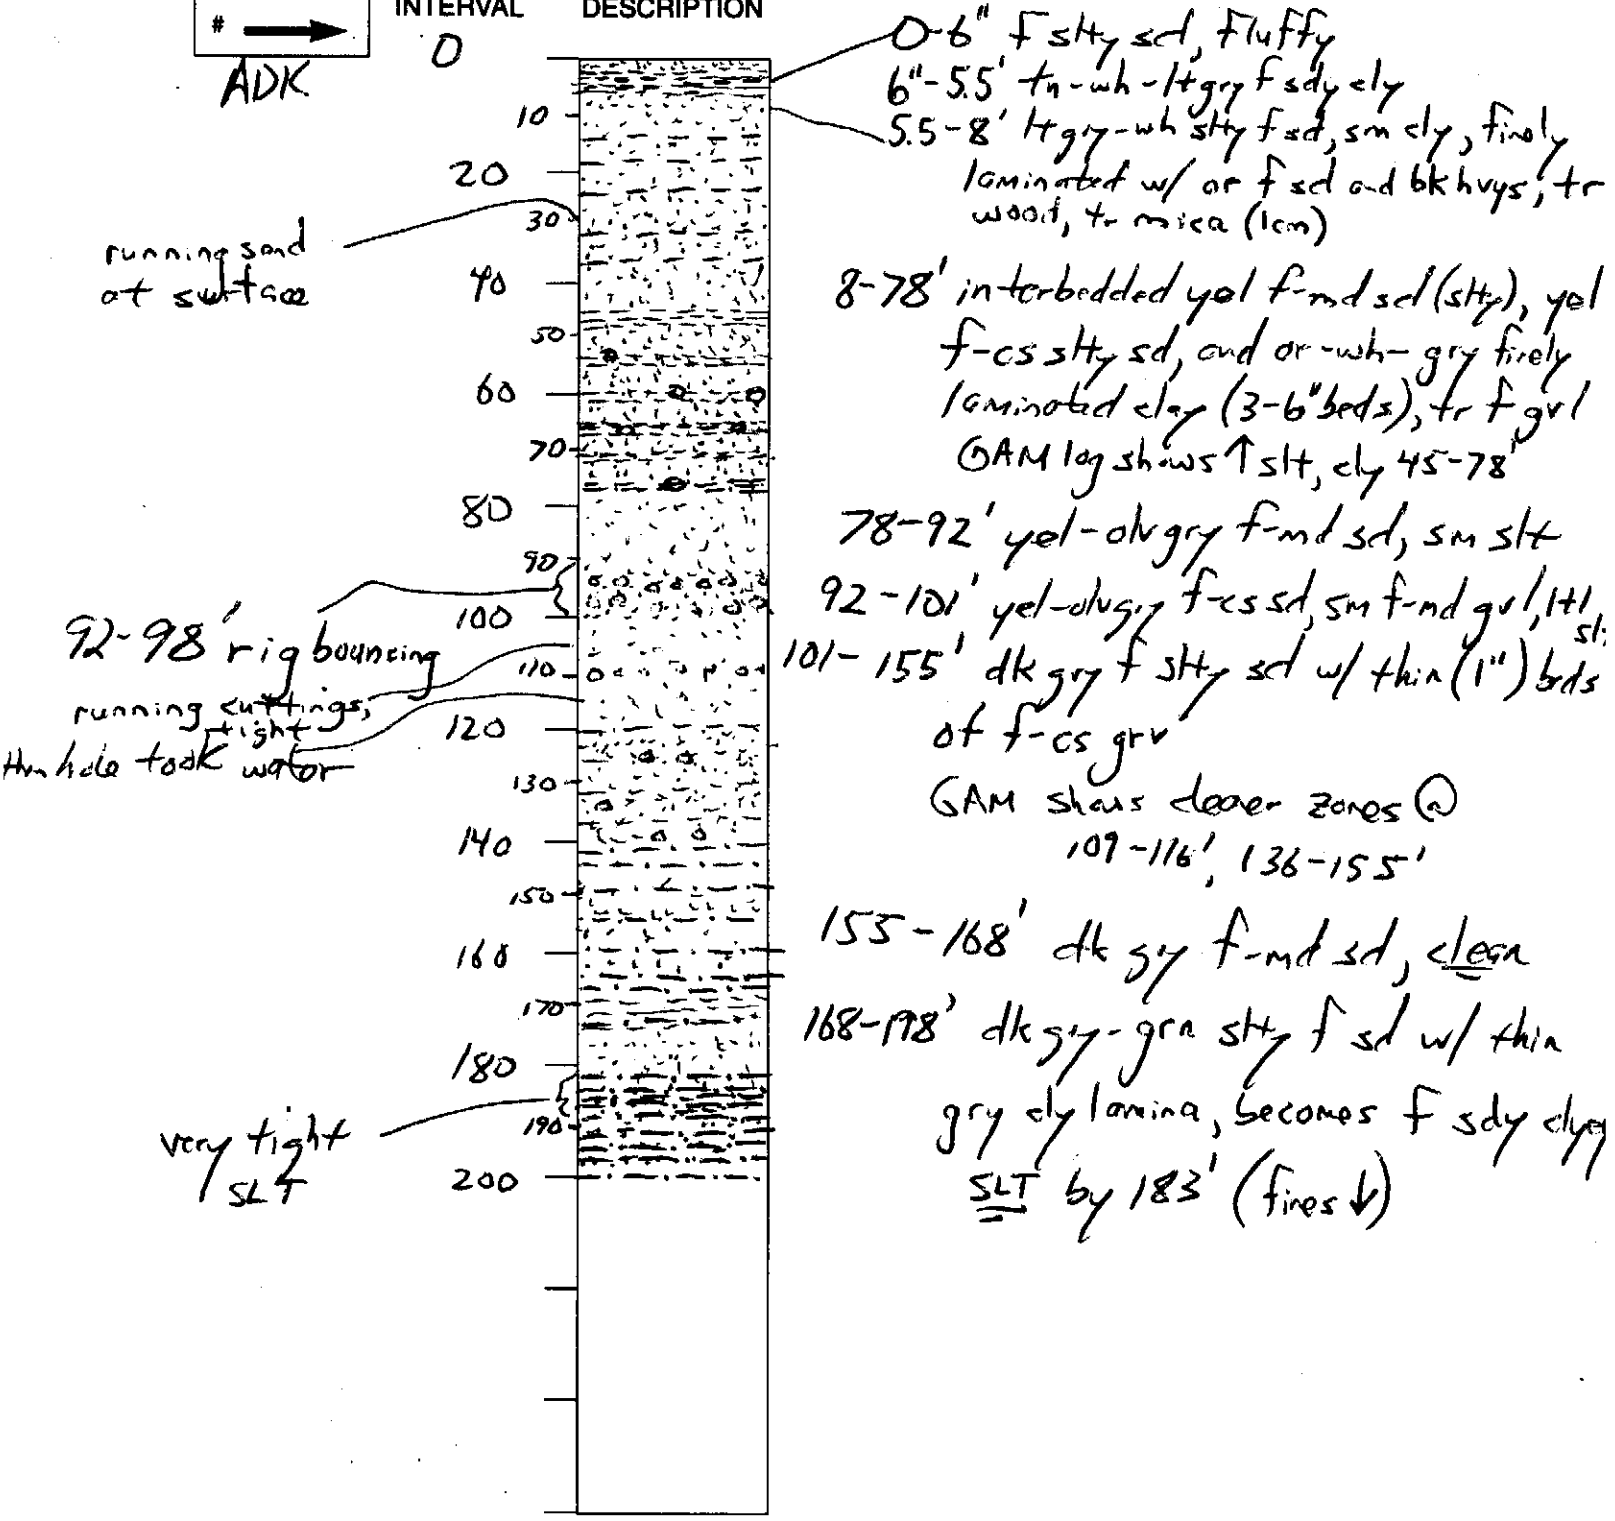 #
INTERVAL DESCRIPTION
ADK
0
10
20
30
40
50
60
70
80
90
100
110
120
130
140
150
160
170
180
190
200
running sand
at surface
92-98' rig bouncing
running cuttings,
tight
then hole took water
very tight
SLT
0-6" f slty sd, fluffy
6"-5.5' tn-wh-ltgry f sdy cly
5.5-8' ltgry-wh slty f sd, sm cly, finely
laminated w/ or f sd and bk hvys, tr
wood, tr mica (1cm)
8-78' interbedded yel f-md sd (slty), yel
f-cs slty sd, and or-wh-gry finely
laminated clay (3-6" beds), tr f gvl
GAM log shows ↑ slt, cly 45-78'
78-92' yel-olvgry f-md sd, sm slt
92-101' yel-olvgry f-cs sd, sm f-md gvl, ltl
101-155' dk gry f slty sd w/ thin (1") beds
of f-cs grv
GAM shows cleaner zones @
109-116', 136-155'
155-168' dk gy f-md sd, clean
168-198' dk gy-grn slty f sd w/ thin
gry cly lamina, becomes f sdy clyey
SLT by 183' (fines ↓)